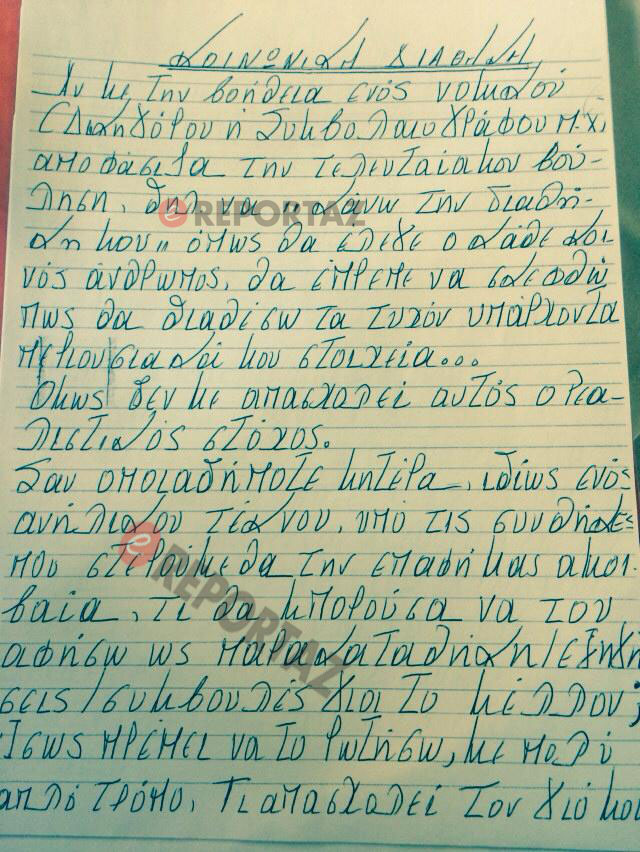 ΚΟΙΝΩΝΙΚΗ ΔΙΑΘΗΚΗ
Αν με την βοήθεια ενός νομικού
(Δικηγόρου ή Συμβολαιογράφου π.χ.)
αποφάσιζα την τελευταία μου βού-
ληση, δηλ να "κάνω την διαθή-
κη μου" όπως θα έλεγε ο κάθε κοι-
νός άνθρωπος, θα έπρεπε να σκεφθώ
πως θα διαθέσω τα τυχόν υπάρχοντα
περιουσιακά μου στοιχεία...
Όμως δεν με απασχολεί αυτός ο ρεα-
λιστικός στόχος.
Σαν οποιαδήποτε μητέρα, ιδίως ενός
ανήλικου τέκνου, υπό τις συνθήκες
που στερούμεθα την επαφή μας αμοι-
βαία, τι θα μπορούσα να του
αφήσω ως παρακαταθήκη/εξηγή
σεις/συμβουλές για το μέλλον;
Ίσως πρέπει να το ρωτήσω, με πολύ
απλό τρόπο, τι απασχολεί τον γιό μου
e REPORTAZ
e REPORTAZ